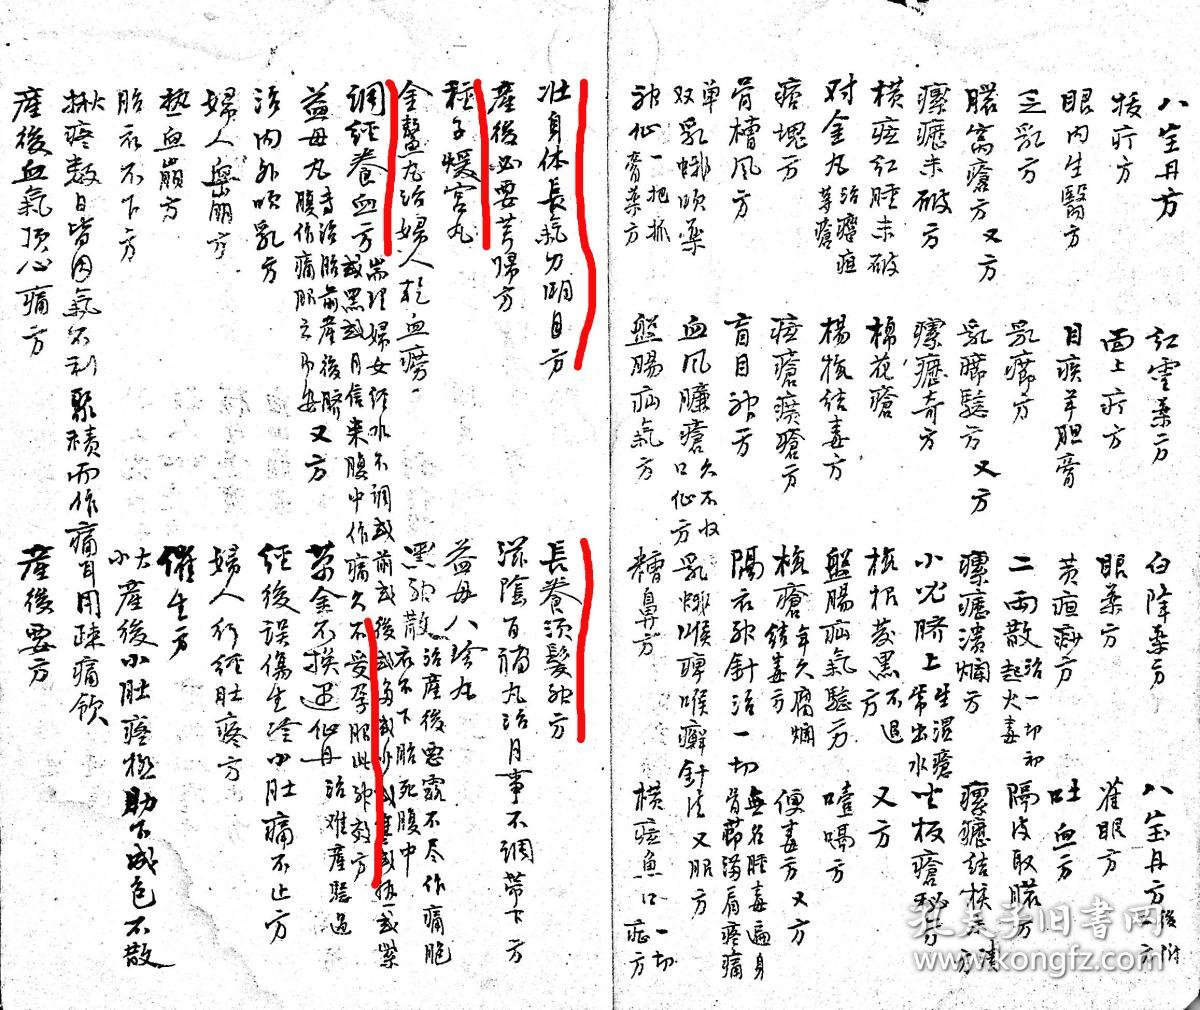 八宝丹方 紅雲藥方 白降藥方 八宝丹方 後附一方
拔疔方 面上疔方 眼藥方 雀眼方
眼內生醫方 目疾羊胆膏 黄疸痧方 吐血方
三乳方 乳癤方 二雨散 治一切初起火毒 隔皮取膿方
膿窩瘡方 又方 乳癤騐方 又方 瘰癧潰爛方 瘰癧結核未潰方
瘰癧未破方 瘰癧奇方 小兒臍上生湿瘡常出水 坐板瘡秘方
橫痃紅腫未破 棉花瘡 桃根發黑不退方 又方
对金丸 治癧疽等瘡 楊梅結毒方 盤腸疝氣騐方 噎嗝方
痞塊方 痃瘡癀瘡方 梅瘡結毒方 年久腐爛 便毒方 又方
骨槽風方 盲目神方 隔衣神針治一切無名腫毒遍身骨節滿肩疼痛
单双乳蛾吹藥 血风臁瘡 久不收口仙方 乳蛾喉痺喉癬針法 又服方
神仙一把抓膏藥方 盤腸疝氣方 糟鼻方 橫痃魚口一切症方
壮身体長氣力明目方 長養须髮神方
產後必要芎歸方 滋陰百補丸治月事不調帶下方
種子煖宮丸 益母八珍丸
金鰲丸治婦人乾血癆 黑神散 治產後惡露不尽作痛胞衣不下胎死腹中
調經養血方 崩理婦女经水不調或前或後或多或少或塞或热或紫或黑或月信来腹中作痛久不受孕服此神效方
益母丸 专治胎前產後臍腹作痛服之即安 又方 萬金不換遇仙丹 治难產騐过
治內外吹乳方 经後误傷生冷小肚痛不止方
婦人血崩方 婦人行經肚疼方
热血崩方 催生方
胎衣不下方 大小產後小肚疼極助下成色不散
楸疼数日皆因氣不利聚積而作痛耳用疎痛飲
產後血氣頂心痛方 產後要方
孔夫子旧书网
www.kongfz.com